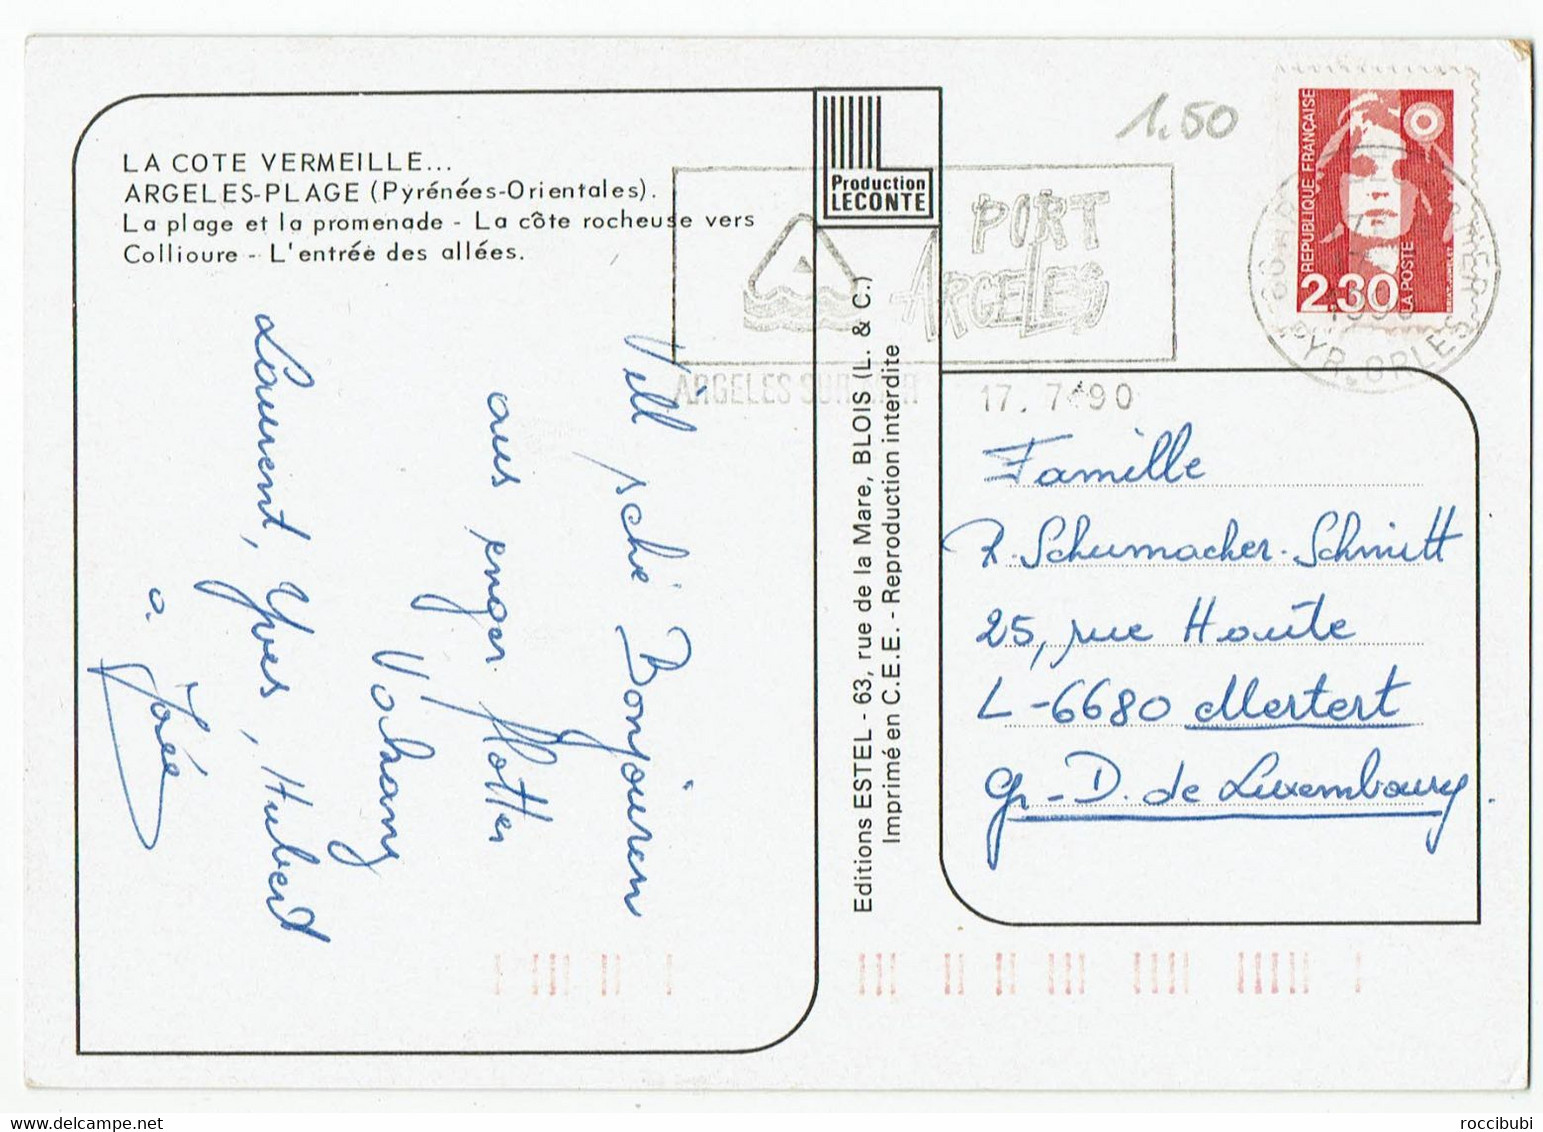 LA COTE VERMEILLE...
ARGELES-PLAGE (Pyrénées-Orientales).
La plage et la promenade - La côte rocheuse vers
Collioure - L'entrée des allées.
Production
LECONTE
PORT
ARGELES
ARGELES SUR MER
17. 7 90
1.50
REPUBLIQUE FRANÇAISE
2.30
LA POSTE
PYR. ORLES
Vill sché Bonjouren
aus enger flotter
Vakanz
Laurent, Yves, Hubert
a. Josée
Editions ESTEL - 63, rue de la Mare, BLOIS (L. & C.)
Imprimé en C.E.E. - Reproduction interdite
Famille
R. Schumacher-Schmitt
25, rue Haute
L-6680 Mertert
Gr-D. de Luxembourg.
roccibubi